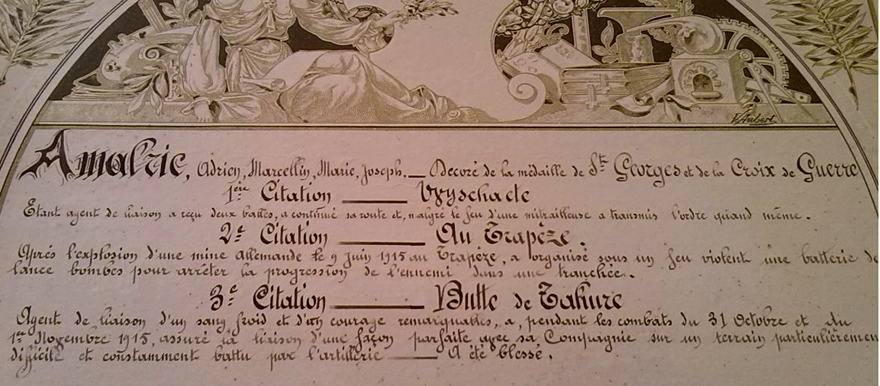 F. Aubert
Amalric, Adrien, Marcellin, Marie, Joseph. — Decoré de la médaille de St Georges et de la Croix de Guerre
1ère Citation — Wyschaete
Etant agent de liaison a reçu deux balles, a continué sa route et, malgré le feu d'une mitrailleuse a transmis l'ordre quand même.
2e Citation — Au Trapèze.
Après l'explosion d'une mine Allemande le 9 juin 1915 au Trapèze, a organisé sous un feu violent une batterie de
lance bombes pour arrêter la progression de l'ennemi dans une tranchée.
3e Citation — Butte de Tahure
Agent de liaison d'un sang froid et d'un courage remarquables, a, pendant les combats du 31 Octobre et du
1er Novembre 1915, assuré la liaison d'une façon parfaite avec sa Compagnie sur un terrain particulièremen
difficile et constamment battu par l'artillerie — A été blessé.